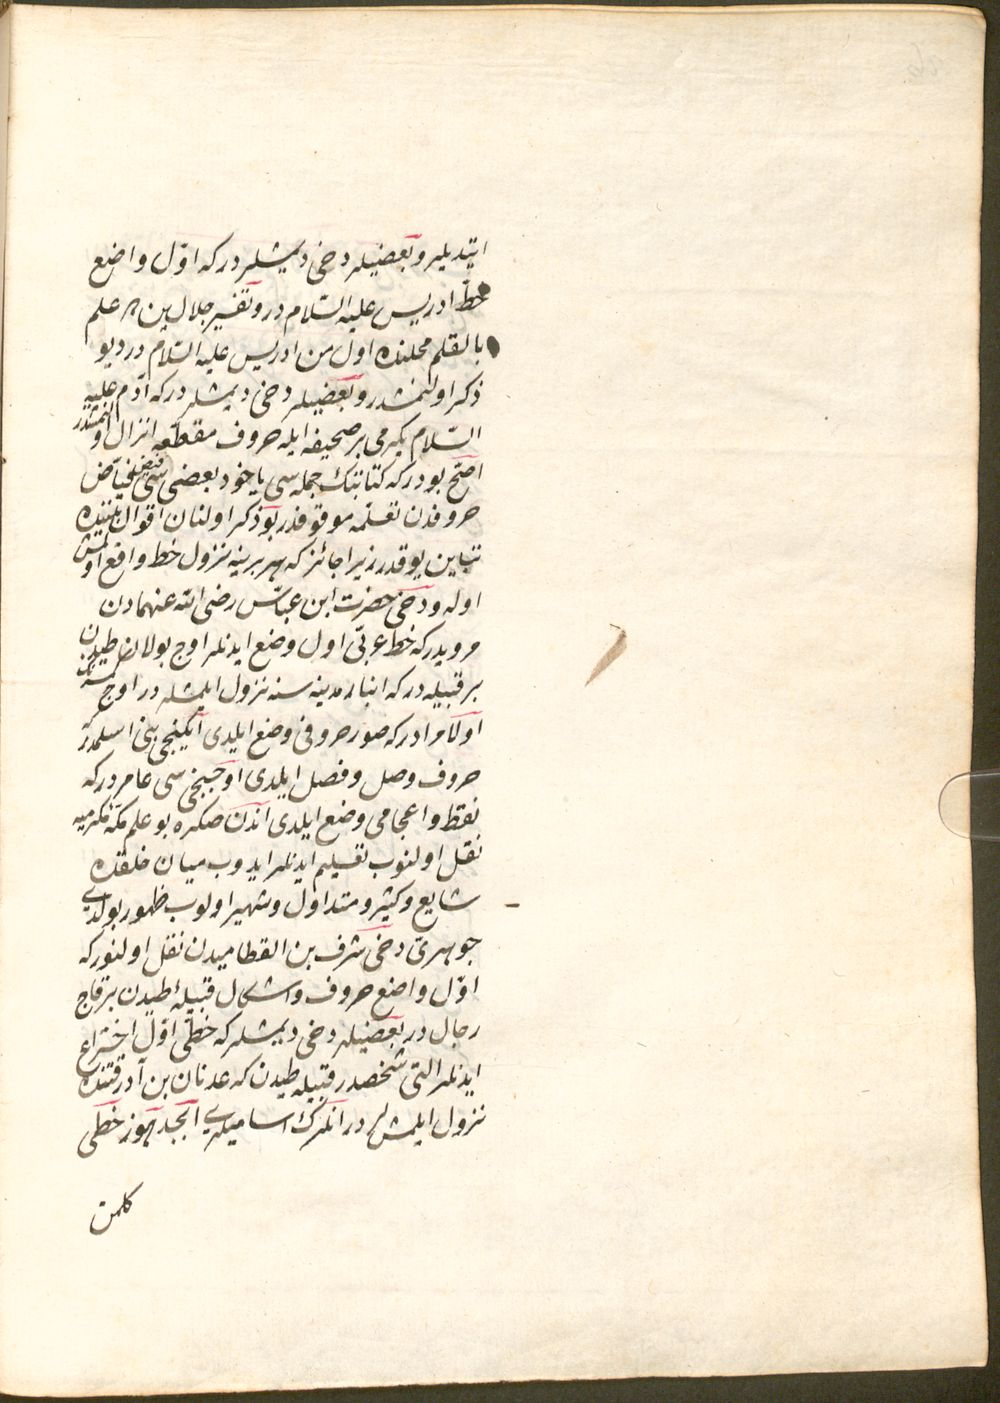 ایتدیلر و بعضیلر دخی دیمشلردر که اوّل واضع
خطّ ادریس علیه السّلام در و تفسیر جلالین ده علم
بالقلم محلنده اول من ادریس علیه السّلام در دیو
ذکر اولنمشدر و بعضیلر دخی دیمشلردر که آدم علیه
السّلام یکرمی بر صحیفه ایله حروف مقطّعه انزال اولنمشدر
اصحّ بودر که کتابتك جمله سی یاخود بعضی سی فیض فیّاض
حروفدن تعلّمه موقوفدر بو ذکر اولنان اقوال بیننده
تباین یوقدر زیرا جائز که هر برینه نزول خط واقع اولمش
اوله و دخی حضرت ابن عبّاس رضی الله عنهمادن
مرویدر که خط عربی اول وضع ایدنلر اوج بولان طیدن
بر قبیله در که انبار مدینه سنه نزول ایلمشلر در اوج کسنه
اولا مرادر که صور حروفی وضع ایلدی ایکنجی بنی اسلمدر که
حروف وصل و فصل ایلدی اوجنجی سی عامر در که
نقط و اعجامی وضع ایلدی اندن صکره بو علم مکّه مکرمیه
نقل اولنوب تعلیم ایدنلر ایدوب میان خلقده
شایع و کثیر و متداول و شهیر اولوب ظهور بولدی
جوهری دخی شرف بن القطامیدن نقل اولنور که
اوّل واضع حروف و اشکال قبیلهٔ طیدن بر قاج
رجال در بعضیلر دخی دیمشلر که خطّی اوّل اختراع
ایدنلر التی شخصدر قبیله طیدن که عدنان بن آد رقتنده
نزول ایلمشلر در انلرك اسامیلری ابجد هوز خطّی
کلمن